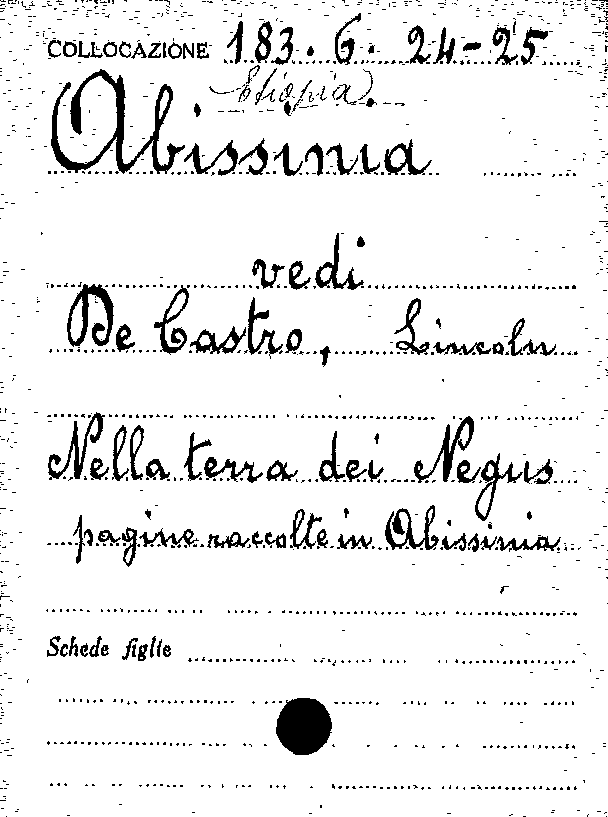 COLLOCAZIONE 183. 6. 24-25
Etiopia.
Abissinia
vedi
De Castro, Lincoln
Nella terra dei Negus
pagine raccolte in Abissinia
Schede figlie